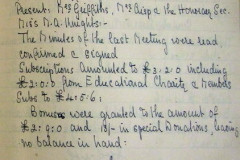 Present: Mrs Griffiths, Mrs Crisp & the Honorary Sec.
Miss M.A. Knights:-
The Minutes of the last Meeting were read
confirmed & signed
Subscriptions amounted to £3:2:0 including
£2:0:0 from Educational Charity & Members
Subs to £4:5:6:
Bonus were granted to the amount of
£2:9:0 and 18/- in special Donations, leaving
no balance in hand: